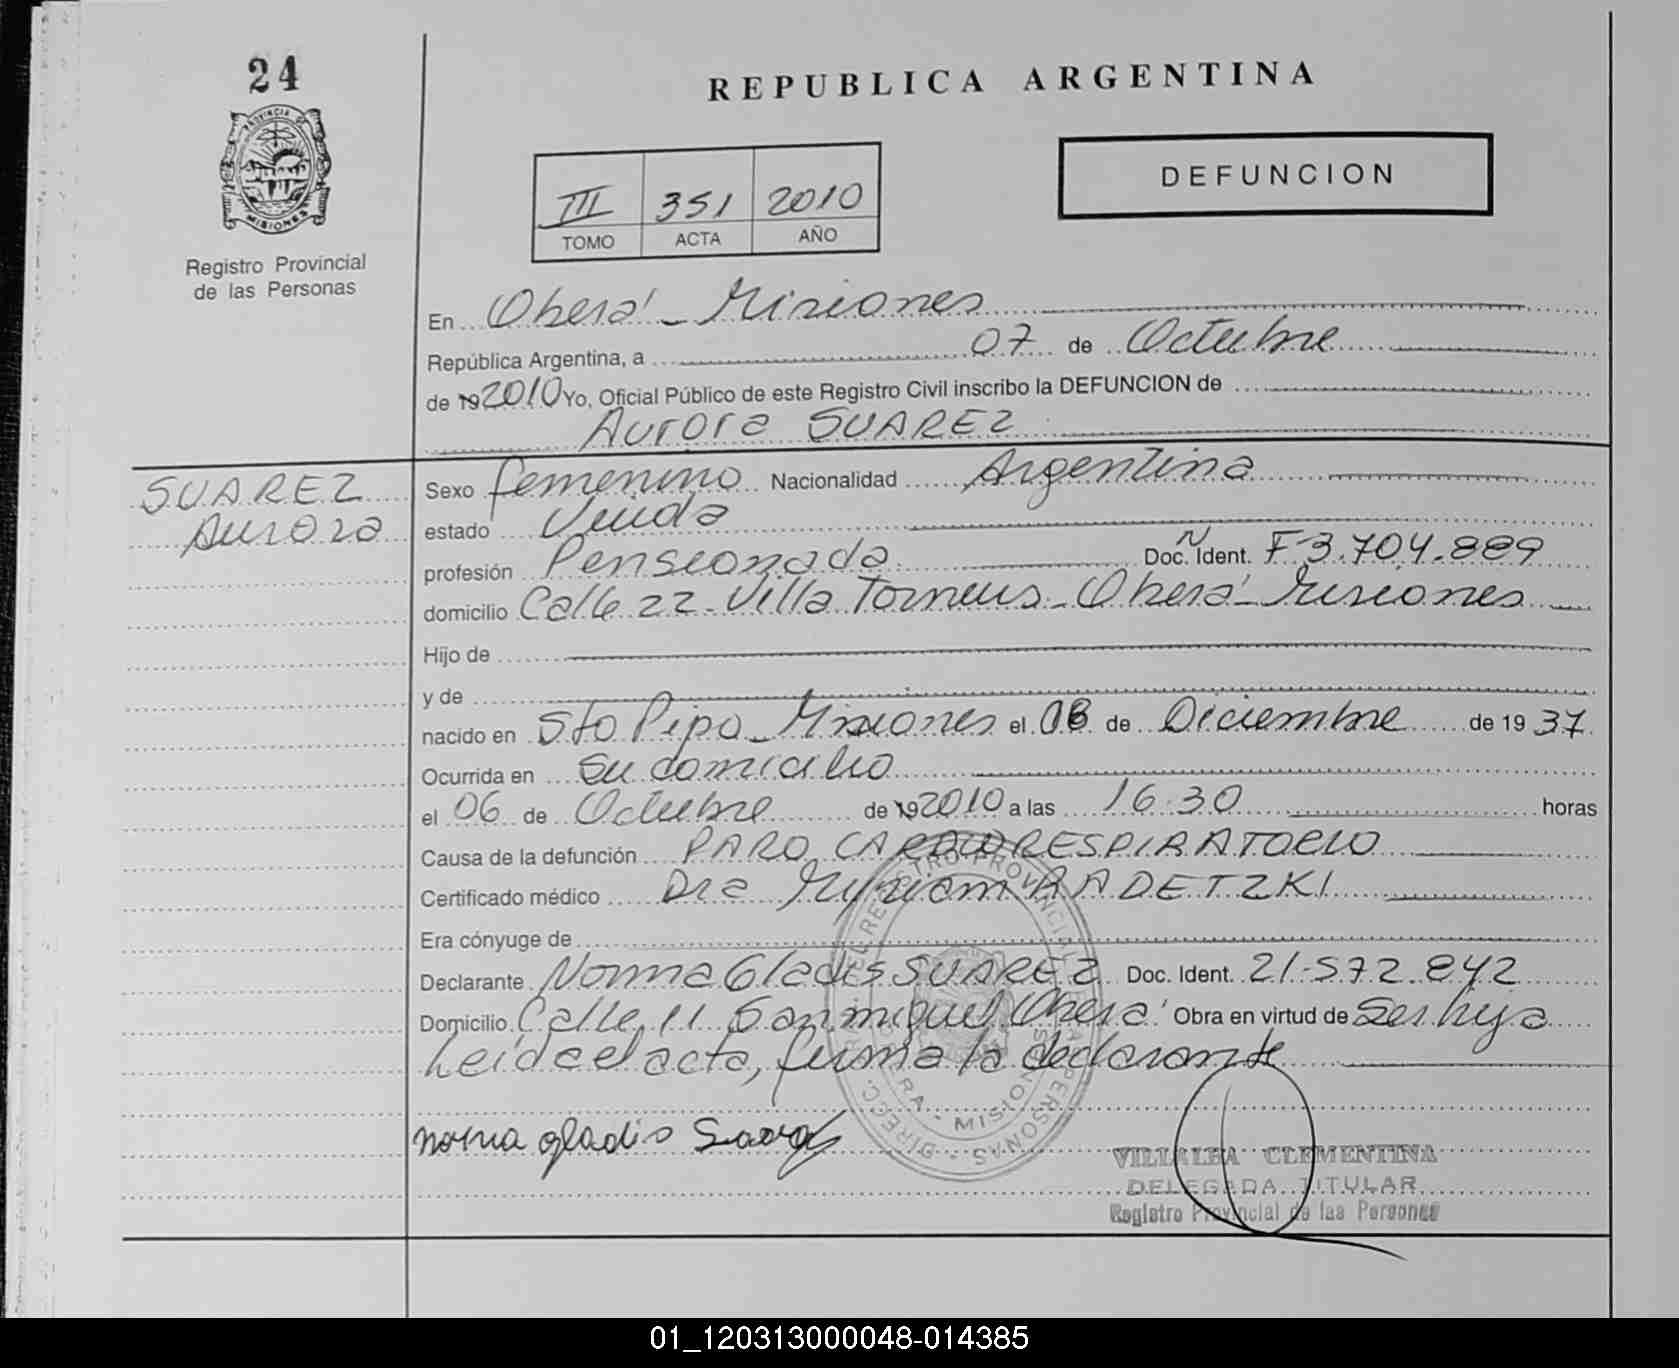 24
REPUBLICA ARGENTINA
PROVINCIA DE
MISIONES
Registro Provincial
de las Personas
III 351 2010
TOMO ACTA AÑO
DEFUNCION
En Oberá - Misiones
República Argentina, a 07 de Octubre
de 192010 Yo, Oficial Público de este Registro Civil inscribo la DEFUNCION de
Aurora SUAREZ
SUAREZ
Aurora
Sexo femenino Nacionalidad Argentina
estado Viuda
profesión Pensionada Doc. N Ident. F 3.704.889
domicilio Calle 22 - Villa Torneus - Oberá - Misiones
Hijo de
y de
nacido en Sto Pipo - Misiones el 08 de Diciembre de 1937
Ocurrida en su domicilio
el 06 de Octubre de 192010 a las 16:30 horas
Causa de la defunción PARO CARDIORESPIRATORIO
Certificado médico Dra Myriam RADETZKI
Era cónyuge de
Declarante Norma Gladis SUAREZ Doc. Ident. 21.572.842
Domicilio Calle 11 San miguel Oberá Obra en virtud de Ser hija
Leida el acta, firma la declarante
norma gladis Suarez
VILLALBA CLEMENTINA
DELEGADA TITULAR
Registro Provincial de las Personas
01_120313000048-014385